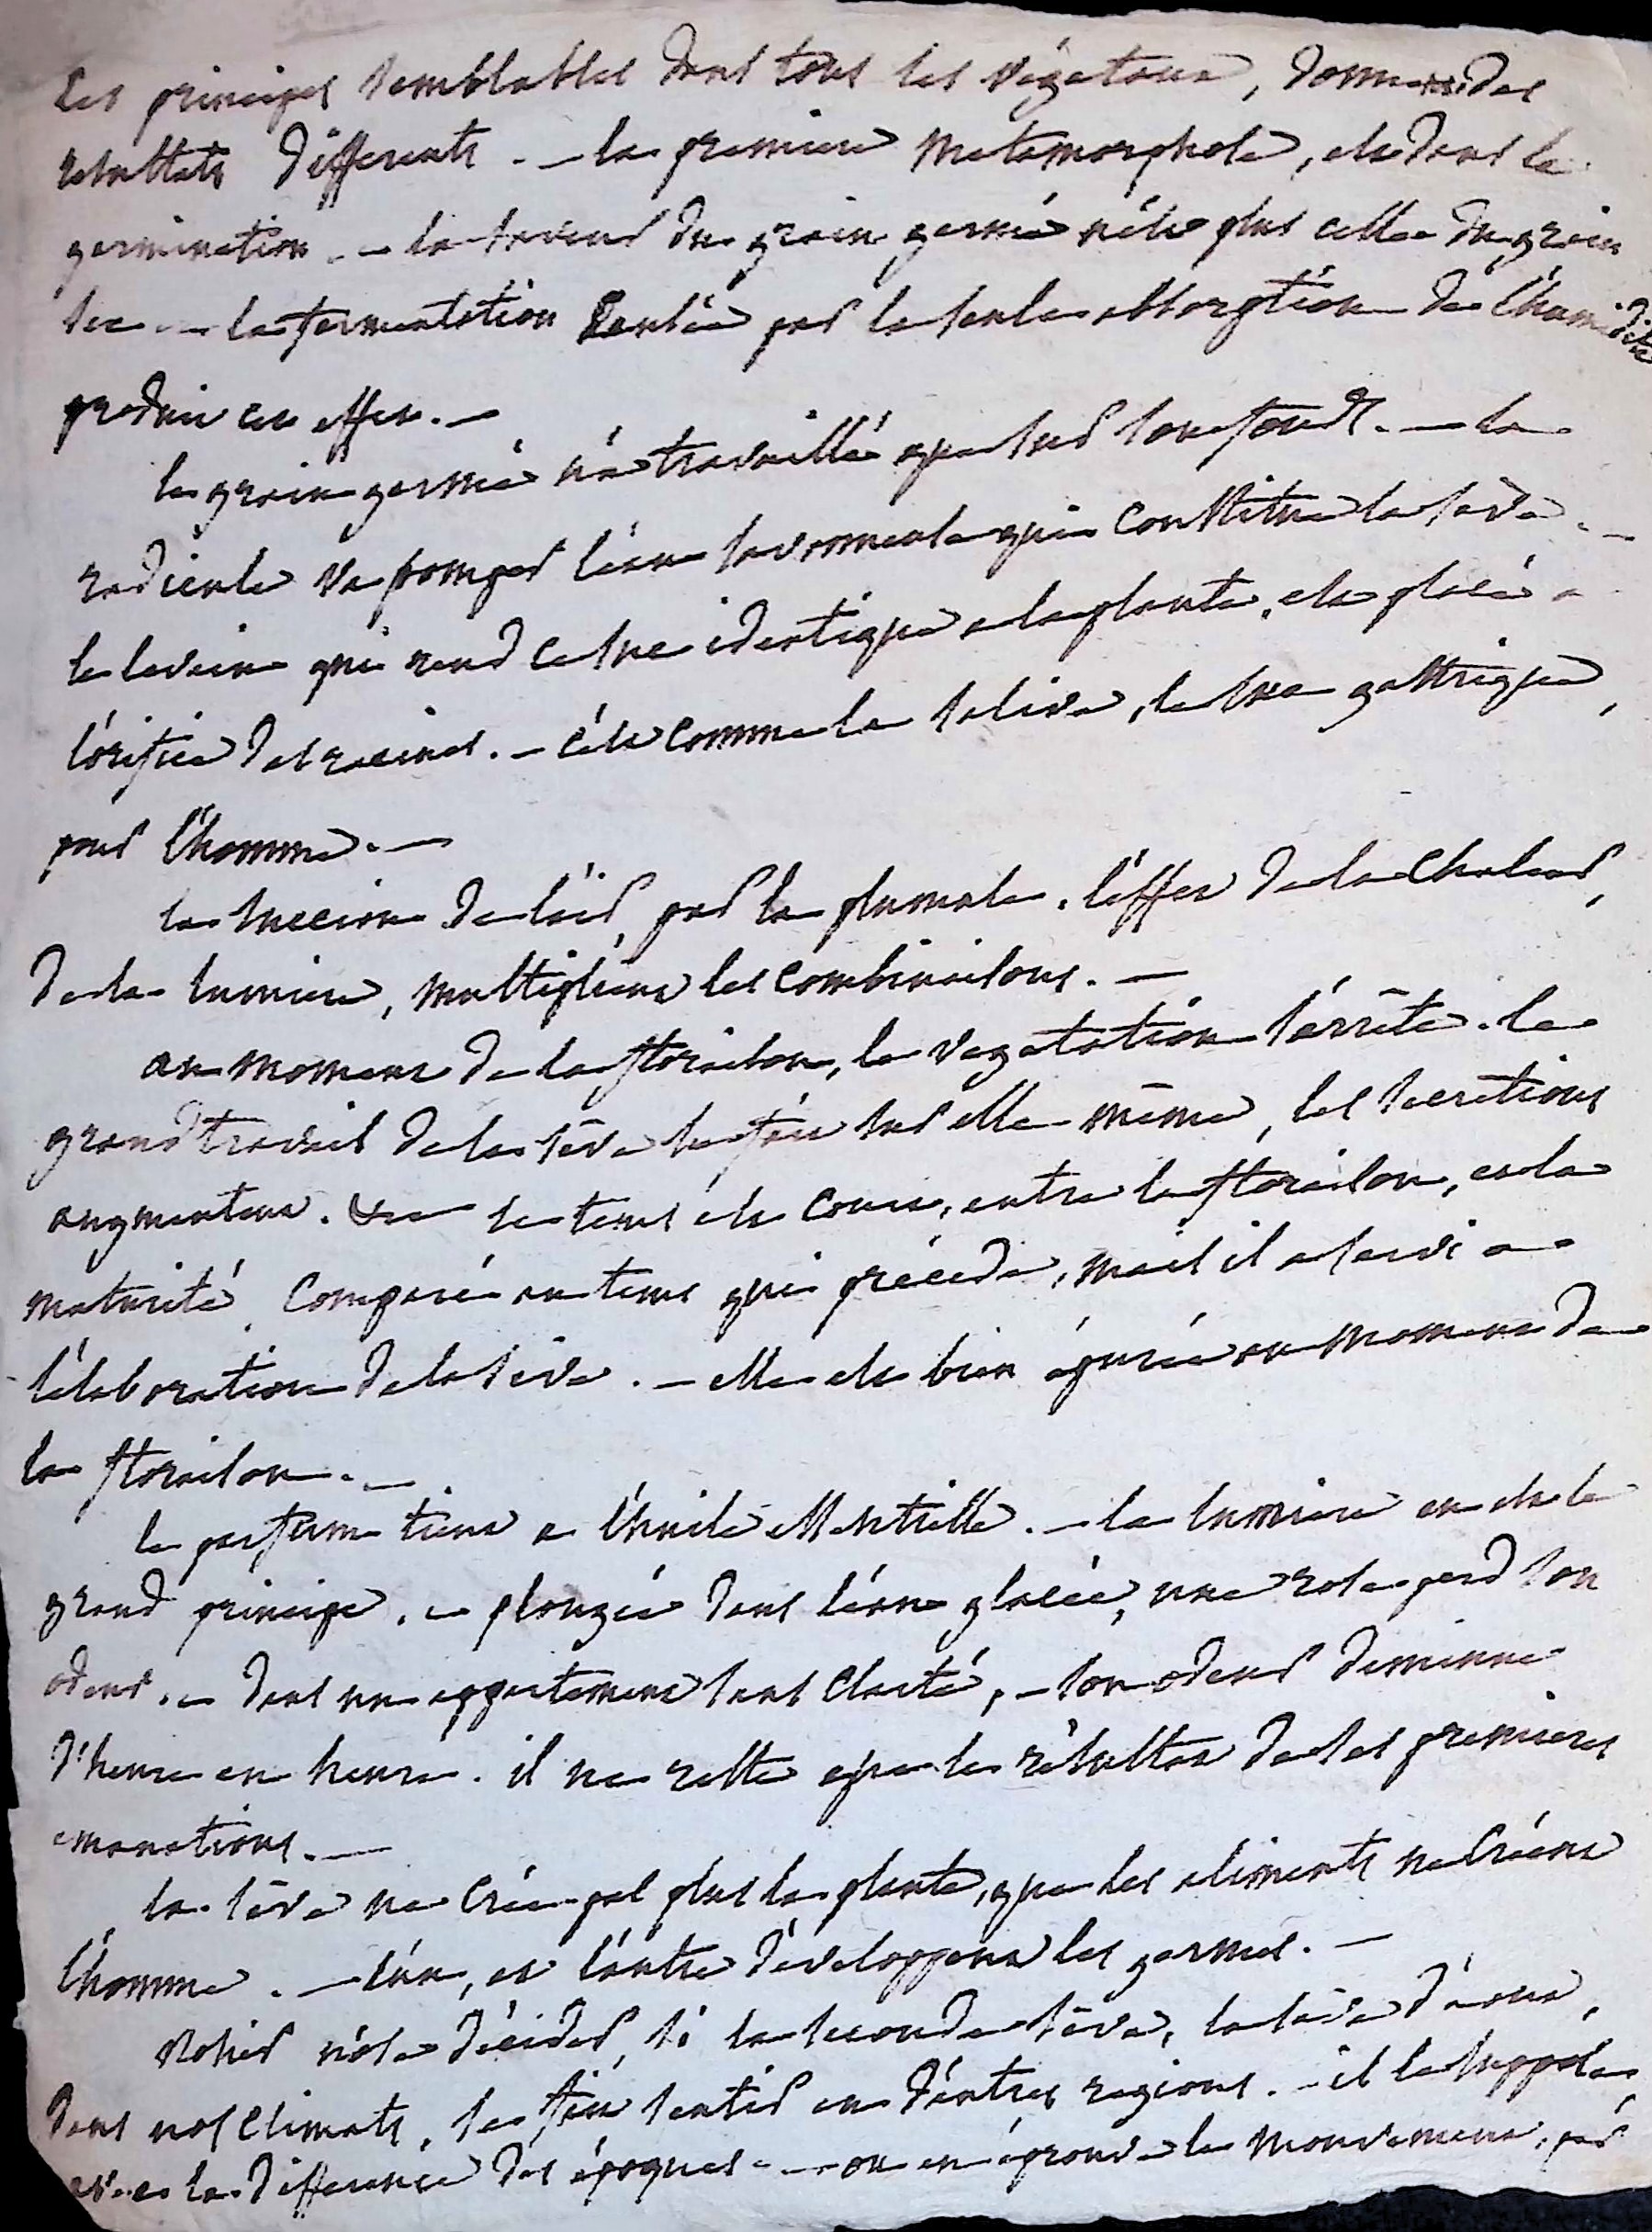 Les principes semblables dans tous les végétaux, donnent des
resultats differents. - la premiere metamorphose, est dans la
germination. - la saveur du grain germé n'est plus celle du grain
sec. - la fermentation causée par la seule absorption de l'humidité
produit cet effet. -
le grain germé n'a travaillé que sur son fonds. - la
radicule va pomper l'eau savonneuse qui constitue la sève. -
le levain qui rend ce suc identique a la plante, est placé a
l'orifice des racines. - c'est comme la salive, le suc gastrique,
pour l'homme. -
la succion de l'air, par la plumule. l'effet de la chaleur,
de la lumiere, multiplient les combinaisons. -
au moment de la floraison, la vegetation s'arrête. le
grand travail de la sève se fait sur elle même, les secretions
augmentent. le tems est court, entre la floraison, et la
maturité, comparé au tems qui précéde, mais il a servi a
l'élaboration de la sève. - elle est bien épurée au moment de
la floraison. -
le parfum tient a l'huile essentielle. - la lumiere en est le
grand principe. - plongée dans l'eau glacée, une rose perd son
odeur. - dans un appartement sans clarté, - son odeur diminue
d'heure en heure. il ne reste que le résultat de ses premieres
emanations. -
la sève ne crée pas plus la plante, que les aliments ne créent
l'homme. - l'un, et l'autre développent les germes. -
Rosier n'ose décider, si la seconde sève, la sève d'aout,
dans nos climats, se fait sentir en d'autres regions. - il le suppose,
avec la difference des époques. - on en éprouve le mouvement, par